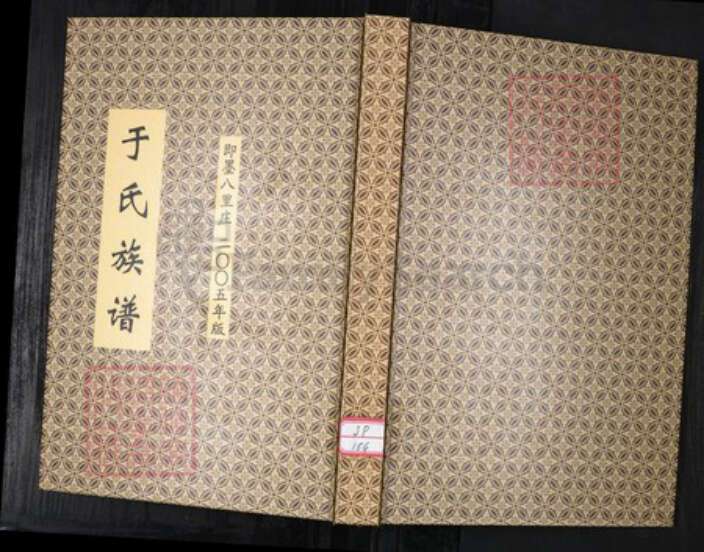 于氏族谱
即墨八里庄二〇〇五年版
JP